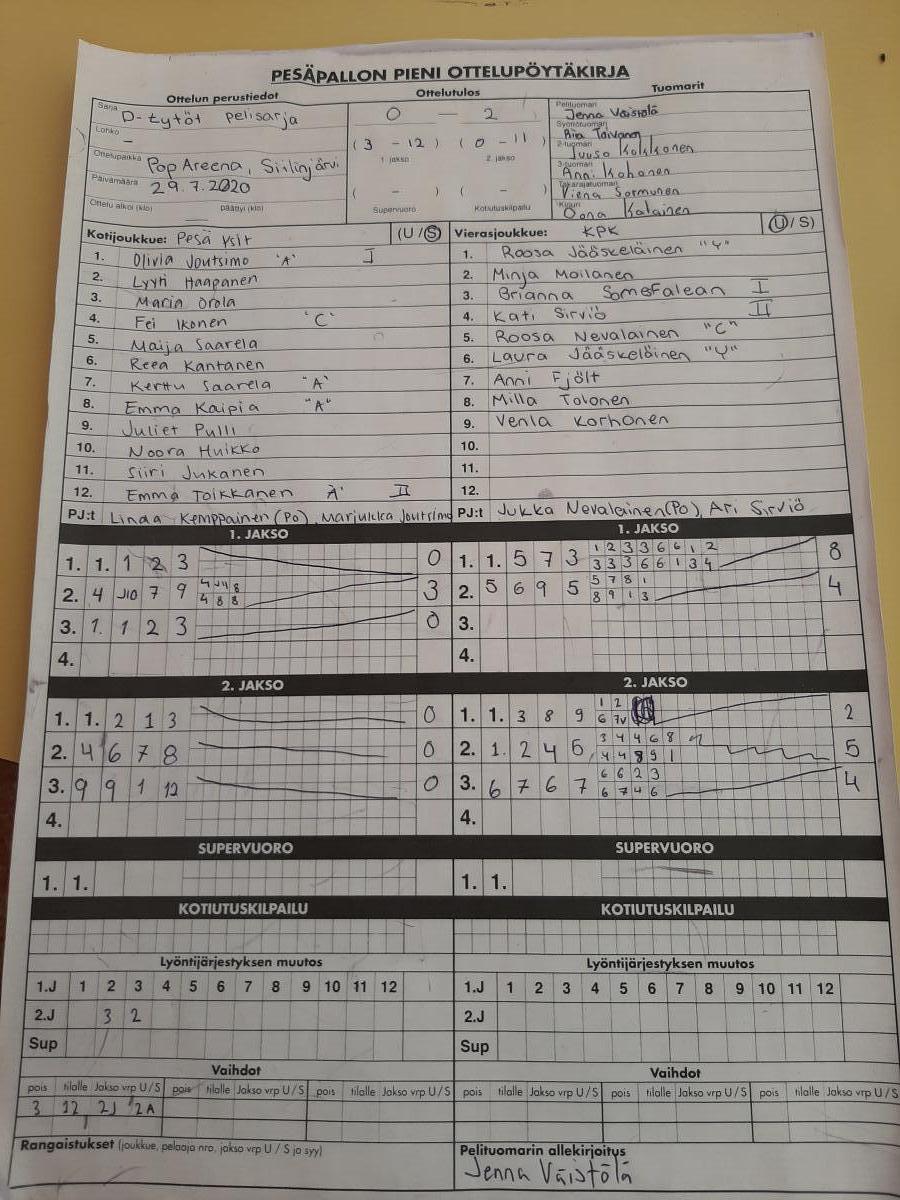 PESÄPALLON PIENI OTTELUPÖYTÄKIRJA
Ottelun perustiedot Ottelutulos Tuomarit
Sarja D-tytöt pelisarja
Lohko -
Ottelupaikka Pop Areena, Siilinjärvi
Päivämäärä 29.7.2020
Ottelu alkoi (klo) päättyi (klo)
0 - 2
(3 - 12) (0 - 11)
1. jakso 2. jakso
( - ) ( - )
Supervuoro Kotiutuskilpailu
Pelituomari Jenna Väistölä
Syöttötuomari Riia Toivanen
2-tuomari Juuso Kokkonen
3-tuomari Anni Kohonen
Takarajatuomari Viena Sormunen
Kirjuri Oona Kalainen
Kotijoukkue: Pesä Ysit (U/S)
1. Olivia Joutsimo "A" I
2. Lyyti Haapanen
3. Maria Orola
4. Fei Ikonen "C"
5. Maija Saarela
6. Reea Kantanen
7. Kerttu Saarela "A"
8. Emma Kaipia "A"
9. Juliet Pulli
10. Noora Huikko
11. Siiri Jukanen
12. Emma Toikkanen A' II
PJ:t Linda Kemppainen (Po), Marjukka Joutsimo
Vierasjoukkue: KPK (U/S)
1. Roosa Jääskeläinen "Y"
2. Minja Moilanen
3. Brianna Somefalean I
4. Kati Sirviö II
5. Roosa Nevalainen "C"
6. Laura Jääskeläinen "Y"
7. Anni Fjölt
8. Milla Tolonen
9. Venla Korhonen
10.
11.
12.
PJ:t Jukka Nevalainen (Po), Ari Sirviö
1. JAKSO
1. 1. 1 2 3 0
2. 4 10 7 9 3
4 8 8
3. 1. 1 2 3 0
4.
1. JAKSO
1. 1. 5 7 3 1 2 3 3 6 6 1 2 8
3 3 3 6 6 1 3 4
2. 5 6 9 5 5 7 8 1 4
8 9 1 3
3.
4.
2. JAKSO
1. 1. 2 1 3 0
2. 4 6 7 8 0
3. 9 9 1 12 0
4.
2. JAKSO
1. 1. 3 8 9 1 2 2
6 7v
2. 1. 2 4 5 3 4 4 6 8 5
4 4 8 9 1
3. 6 7 6 7 6 6 2 3 4
6 7 4 6
4.
SUPERVUORO
1. 1.
SUPERVUORO
1. 1.
KOTIUTUSKILPAILU
KOTIUTUSKILPAILU
Lyöntijärjestyksen muutos
1.J 1 2 3 4 5 6 7 8 9 10 11 12
2.J 3 2
Sup
Lyöntijärjestyksen muutos
1.J 1 2 3 4 5 6 7 8 9 10 11 12
2.J
Sup
Vaihdot
pois tilalle Jakso vrp U/S pois tilalle Jakso vrp U/S pois tilalle Jakso vrp U/S
3 12 2J 2A
Vaihdot
pois tilalle Jakso vrp U/S pois tilalle Jakso vrp U/S pois tilalle Jakso vrp U/S
Rangaistukset (joukkue, pelaaja nro, jakso vrp U / S ja syy)
Pelituomarin allekirjoitus
Jenna Väistölä